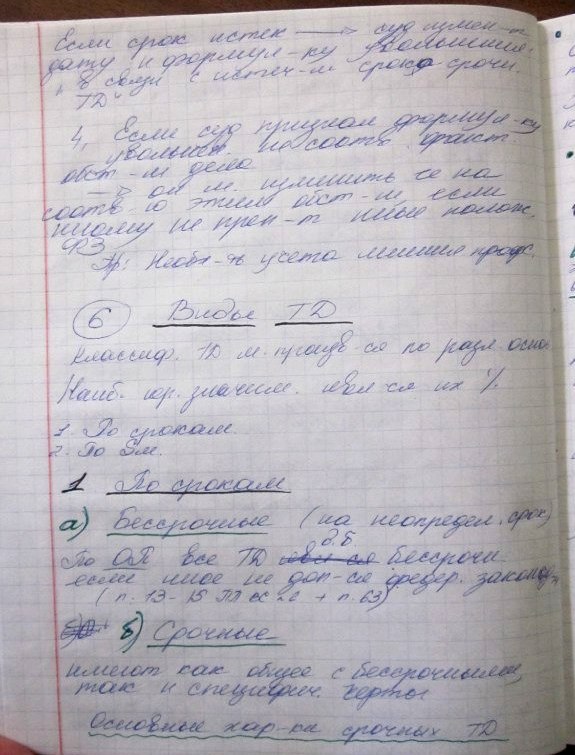 Если срок истек → суд измен-т
дату и формул-ку увольнения
"в связи с истеч-м срока срочн.
ТД"
4, Если суд признал формул-ку
увольнен. не соотв. факт.
обст-м дела
→ он м. изменить ее на
соотв-ю этим обст-м, если
иному не преп-т иные полож.
ФЗ
Пр: Необх-ть учета мнения проф.
6 Виды ТД
Классиф. ТД м. произв-ся по разл. осно
Наиб. юр. значим. явл-ся их %
1. По срокам.
2. По Sм.
1 По срокам
а) Бессрочные (на неопредел. срок)
д.б.
По ОП все ТД явл-ся бессрочн.
если иное не доп-ся федер. законод-м
(п. 13-15 ПП ВС 2 + п. 63)
б) Срочные
имеют как общие с бессрочными,
так и специфич. черты
Основные хар-ки срочных ТД